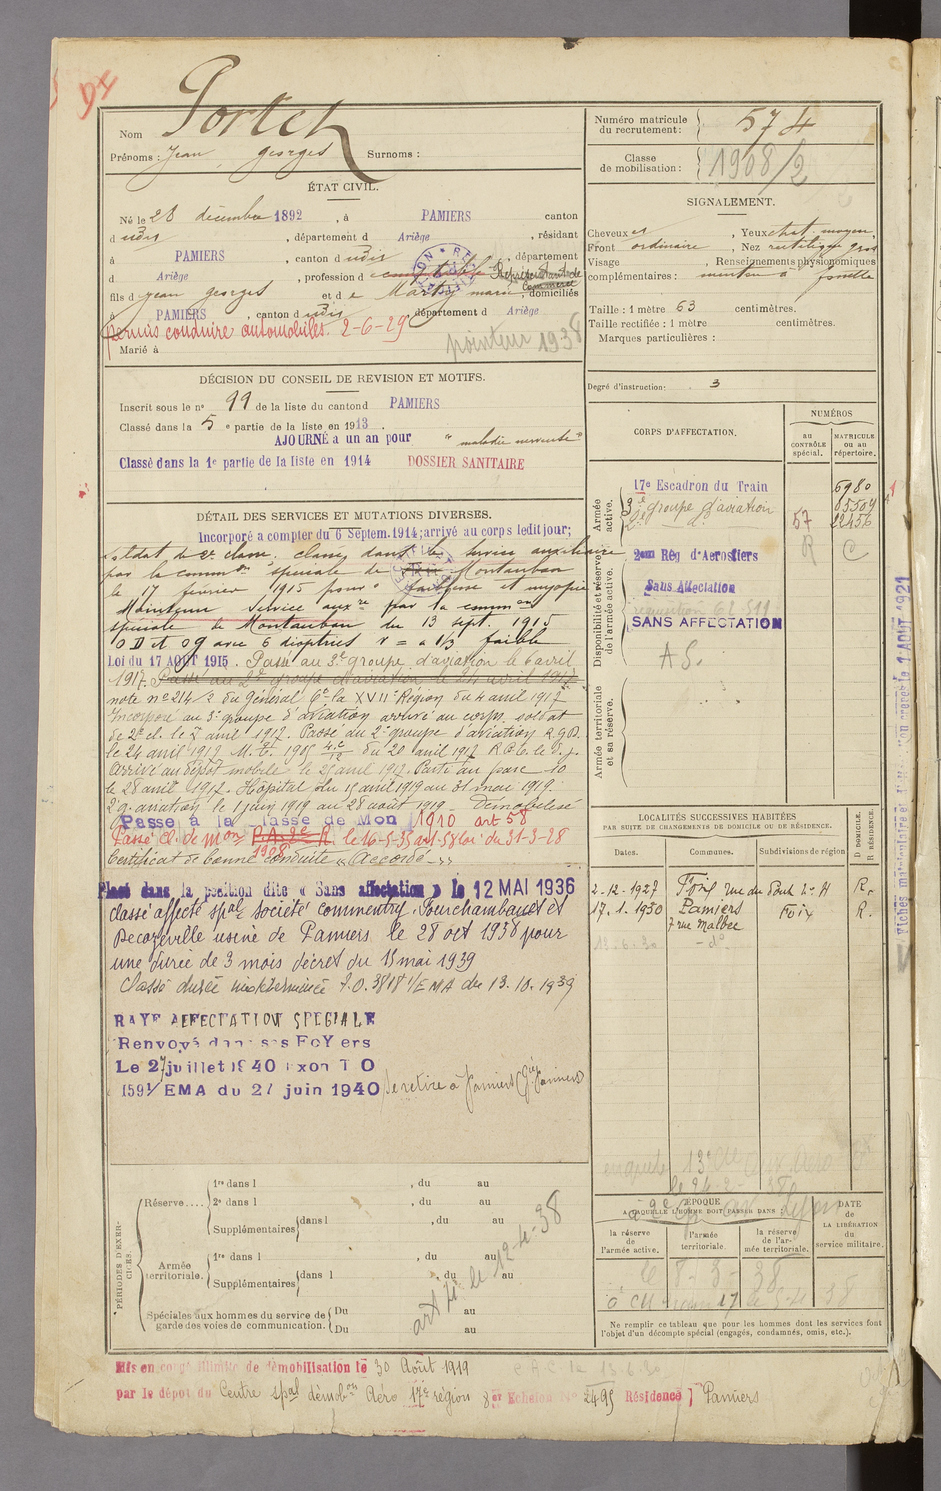 94
Nom Portet
Prénoms : Jean georges Surnoms :
ÉTAT CIVIL.
Né le 28 décembre 1892, à PAMIERS canton
d udis, département d Ariège, résidant
à PAMIERS, canton d udis, département
d Ariège, profession de comptable Représentant de Commerce
fils d Jean georges et de Marty marie, domiciliés
à PAMIERS, canton d udis, département d Ariège
permis conduire automobiles. 2-6-29
pointeur 1938
Marié à
DÉCISION DU CONSEIL DE REVISION ET MOTIFS.
Inscrit sous le n° 99 de la liste du canton d PAMIERS
Classé dans la 5e partie de la liste en 1913.
AJOURNÉ a un an pour "maladie nerveuse"
Classé dans la 1e partie de la liste en 1914 DOSSIER SANITAIRE
DÉTAIL DES SERVICES ET MUTATIONS DIVERSES.
Incorporé a compter du 6 Septem. 1914; arrivé au corps ledit jour;
soldat de 2e classe. classé dans le service auxiliaire
par la common spéciale de Montauban
le 17 février 1915 pour et myopie
Maintenu service auxre par la common
spéciale de Montauban du 13 sept. 1915
O D et O g avec 6 dioptries v = a 1/3 faible
Loi du 17 AOUT 1915. Passé au 3e groupe d'aviation le 6 avril
1917. Passé au 2e groupe d'aviation le 24 avril 1917
note n° 214/2 du Général Ct la XVIIe Région du 4 avril 1917
Incorporé au 3e groupe d'aviation arrivé au corps, soldat
de 2e cl. le avril 1917. Passé au 2e groupe d'aviation R.g.D.
le 24 avril 1917 M. 1905 4.C/12 du 20 avril 1917 le d. j.
Arrivé au dépôt mobile le 25 avril 1917. Parti au parc 10
le 28 avril 1917. Hôpital du 15 avril 1919 au 31 mai 1919.
2e g. aviation le 1 juin 1919 au 28 août 1919 - Démobilisé
Passe à la Classe de Mon 1910 art 58
Passé cl. de Mon 1908 le 16-5-35 art. 58 loi du 31-3-28
Certificat de bonne conduite "Accordé"
Placé dans la position dite « Sans affectation » le 12 MAI 1936
classé affecté spal société commentry. Fourchambault et
Decazeville usine de Pamiers le 28 oct 1938 pour
une durée de 3 mois décret du 15 mai 1939
Classé durée indéterminée I.O. 3818 1/EMA du 13.10.1939
RAYE AFFECTATION SPECIALE
Renvoyé dans ses FoYers
Le 27 juillet 1940 Exon I O
1591/EMA du 27 juin 1940 Se retire à Pamiers (gie Pamiers)
PÉRIODES D'EXERCICES.
Réserve....
1re dans l , du au
2e dans l , du au
Supplémentaires dans l , du au
Armée territoriale.
1re dans l , du au
Supplémentaires dans l , du au
Spéciales aux hommes du service de garde des voies de communication.
Du au
Du au
le 12-4-38
Mis en congé illimité de démobilisation le 30 Août 1919
par le dépôt du Centre spal démobon Aéro 17e région 8er Echelon No 2495 Résidence Pamiers
Numéro matricule du recrutement : 574
Classe de mobilisation : 1908/2
SIGNALEMENT.
Cheveux , Yeux chat. moyen,
Front ordinaire, Nez rectiligne gros
Visage , Renseignements physionomiques
complémentaires : menton à fossette
Taille : 1 mètre 63 centimètres.
Taille rectifiée : 1 mètre centimètres.
Marques particulières :
Degré d'instruction : 3
CORPS D'AFFECTATION.
NUMÉROS
au CONTRÔLE spécial.
MATRICULE ou au répertoire.
Armée active.
17e Escadron du Train 6980
3e groupe d'aviation 85504
2e 57 22456
R
Disponibilité et réserve de l'armée active.
2eme Rég d'Aerostiers
Sans Affectation
requisition
SANS AFFECTATION
A S.
Armée territoriale et sa réserve.
LOCALITÉS SUCCESSIVES HABITÉES
PAR SUITE DE CHANGEMENTS DE DOMICILE OU DE RÉSIDENCE.
Dates. Communes. Subdivisions de région
D. DOMICILE. R. RÉSIDENCE.
2-12-1927 Foix rue du Pont R.
17.1.1930 Pamiers Foix R.
7 rue Malbec
13-6-30 - d° -
ÉPOQUE
A LAQUELLE L'HOMME DOIT PASSER DANS :
la réserve de l'armée active.
l'armée territoriale.
la réserve de l'armée territoriale.
DATE de LA LIBÉRATION du service militaire.
le 8-3-38
Ne remplir ce tableau que pour les hommes dont les services font
l'objet d'un décompte spécial (engagés, condamnés, omis, etc.).